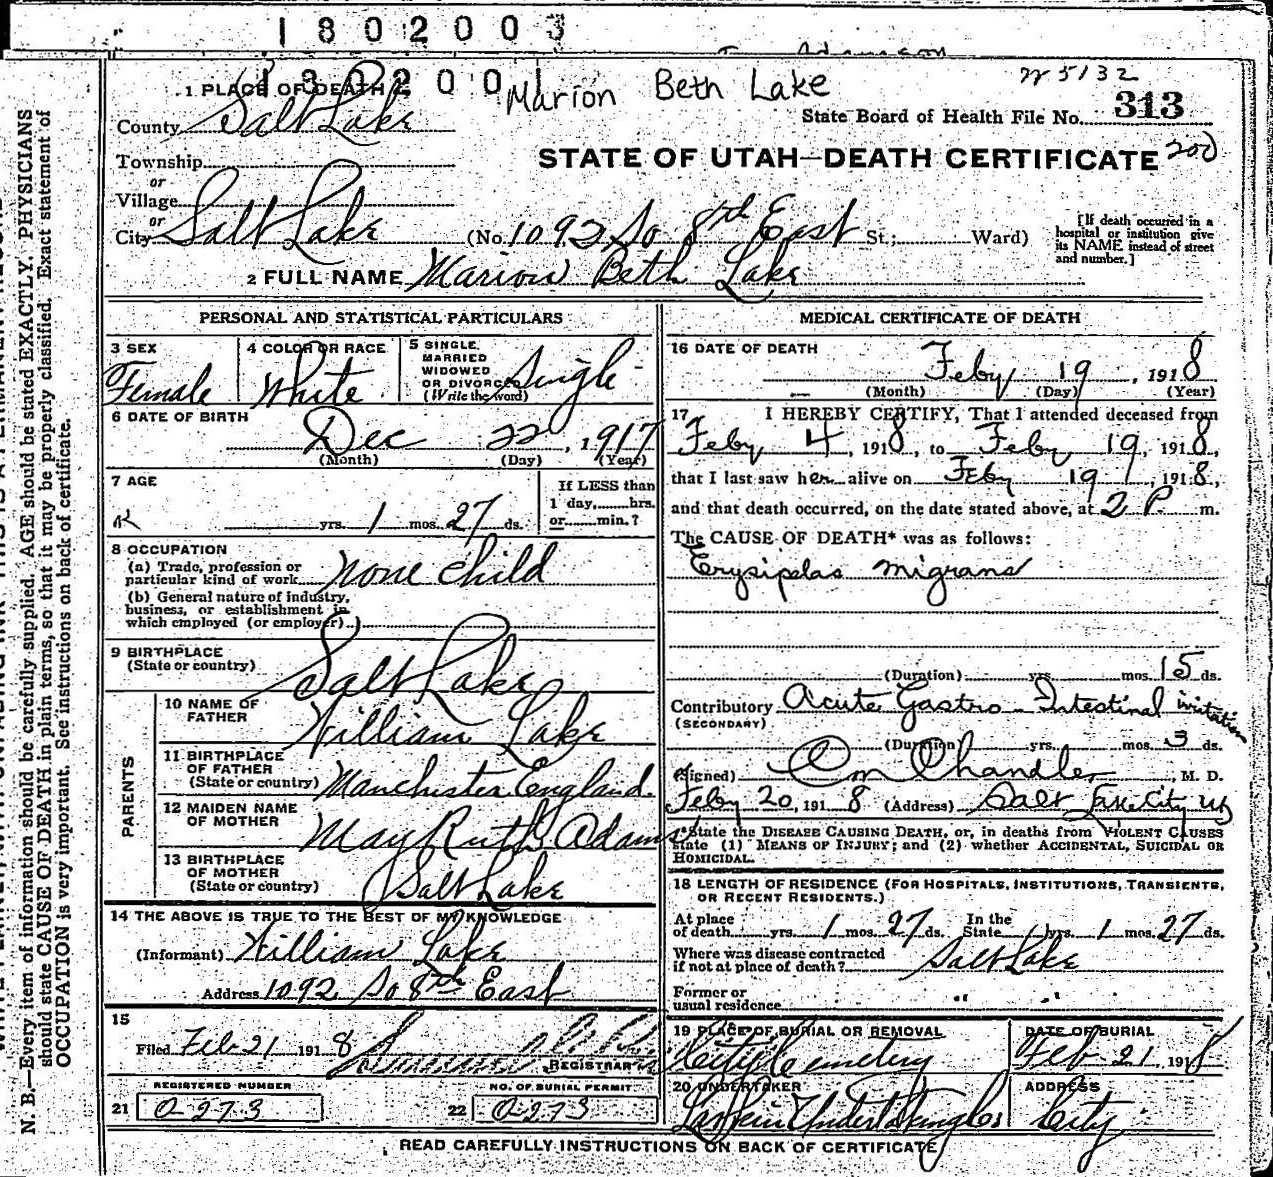 1802003
Adamson
1802001
Marion Beth Lake
1 PLACE OF DEATH
State Board of Health File No. 313
County Salt Lake
STATE OF UTAH—DEATH CERTIFICATE 200
Township
or
Village
or
City Salt Lake (No. 1092 So 8th East St.; Ward)
[If death occurred in a hospital or institution give its NAME instead of street and number.]
2 FULL NAME Marion Beth Lake
PERSONAL AND STATISTICAL PARTICULARS
3 SEX Female
4 COLOR OR RACE White
5 SINGLE, MARRIED WIDOWED OR DIVORCED (Write the word) Single
6 DATE OF BIRTH
Dec 22, 1917
(Month) (Day) (Year)
7 AGE
yrs. 1 mos. 27 ds.
If LESS than 1 day, hrs. or min.?
8 OCCUPATION
(a) Trade, profession or particular kind of work none child
(b) General nature of industry, business, or establishment in which employed (or employer)
9 BIRTHPLACE
(State or country) Salt Lake
PARENTS
10 NAME OF FATHER William Lake
11 BIRTHPLACE OF FATHER (State or country) Manchester England.
12 MAIDEN NAME OF MOTHER May Ruth Adams
13 BIRTHPLACE OF MOTHER (State or country) Salt Lake
14 THE ABOVE IS TRUE TO THE BEST OF MY KNOWLEDGE
(Informant) William Lake
Address 1092 So 8th East
15
Filed Feb 21 1918
REGISTRAR
REGISTERED NUMBER
21 0-273
NO. OF BURIAL PERMIT
22 0-273
MEDICAL CERTIFICATE OF DEATH
16 DATE OF DEATH
Feby 19, 1918
(Month) (Day) (Year)
17 I HEREBY CERTIFY, That I attended deceased from
Feby 4, 1918, to Feby 19, 1918,
that I last saw her alive on Feby 19, 1918,
and that death occurred, on the date stated above, at 2 P. m.
The CAUSE OF DEATH* was as follows:
Erysipelas migrans
(Duration) yrs. mos. 15 ds.
Contributory Acute Gastro-Intestinal irritation
(SECONDARY)
(Duration) yrs. mos. 3 ds.
(Signed) Chandler, M. D.
Feby 20, 1918 (Address) Salt Lake City
*State the DISEASE CAUSING DEATH, or, in deaths from VIOLENT CAUSES
state (1) MEANS OF INJURY; and (2) whether ACCIDENTAL, SUICIDAL OR
HOMICIDAL.
18 LENGTH OF RESIDENCE (FOR HOSPITALS, INSTITUTIONS, TRANSIENTS,
OR RECENT RESIDENTS.)
At place of death yrs. 1 mos. 27 ds. In the State yrs. 1 mos. 27 ds.
Where was disease contracted if not at place of death? Salt Lake
Former or usual residence " "
19 PLACE OF BURIAL OR REMOVAL City Cemetery
DATE OF BURIAL Feb 21 1918
20 UNDERTAKER Larkin Undertaking Co
ADDRESS City
READ CAREFULLY INSTRUCTIONS ON BACK OF CERTIFICATE
N. B.—Every item of information should be carefully supplied. AGE should be stated EXACTLY. PHYSICIANS
should state CAUSE OF DEATH in plain terms, so that it may be properly classified. Exact statement of
OCCUPATION is very important. See instructions on back of certificate.